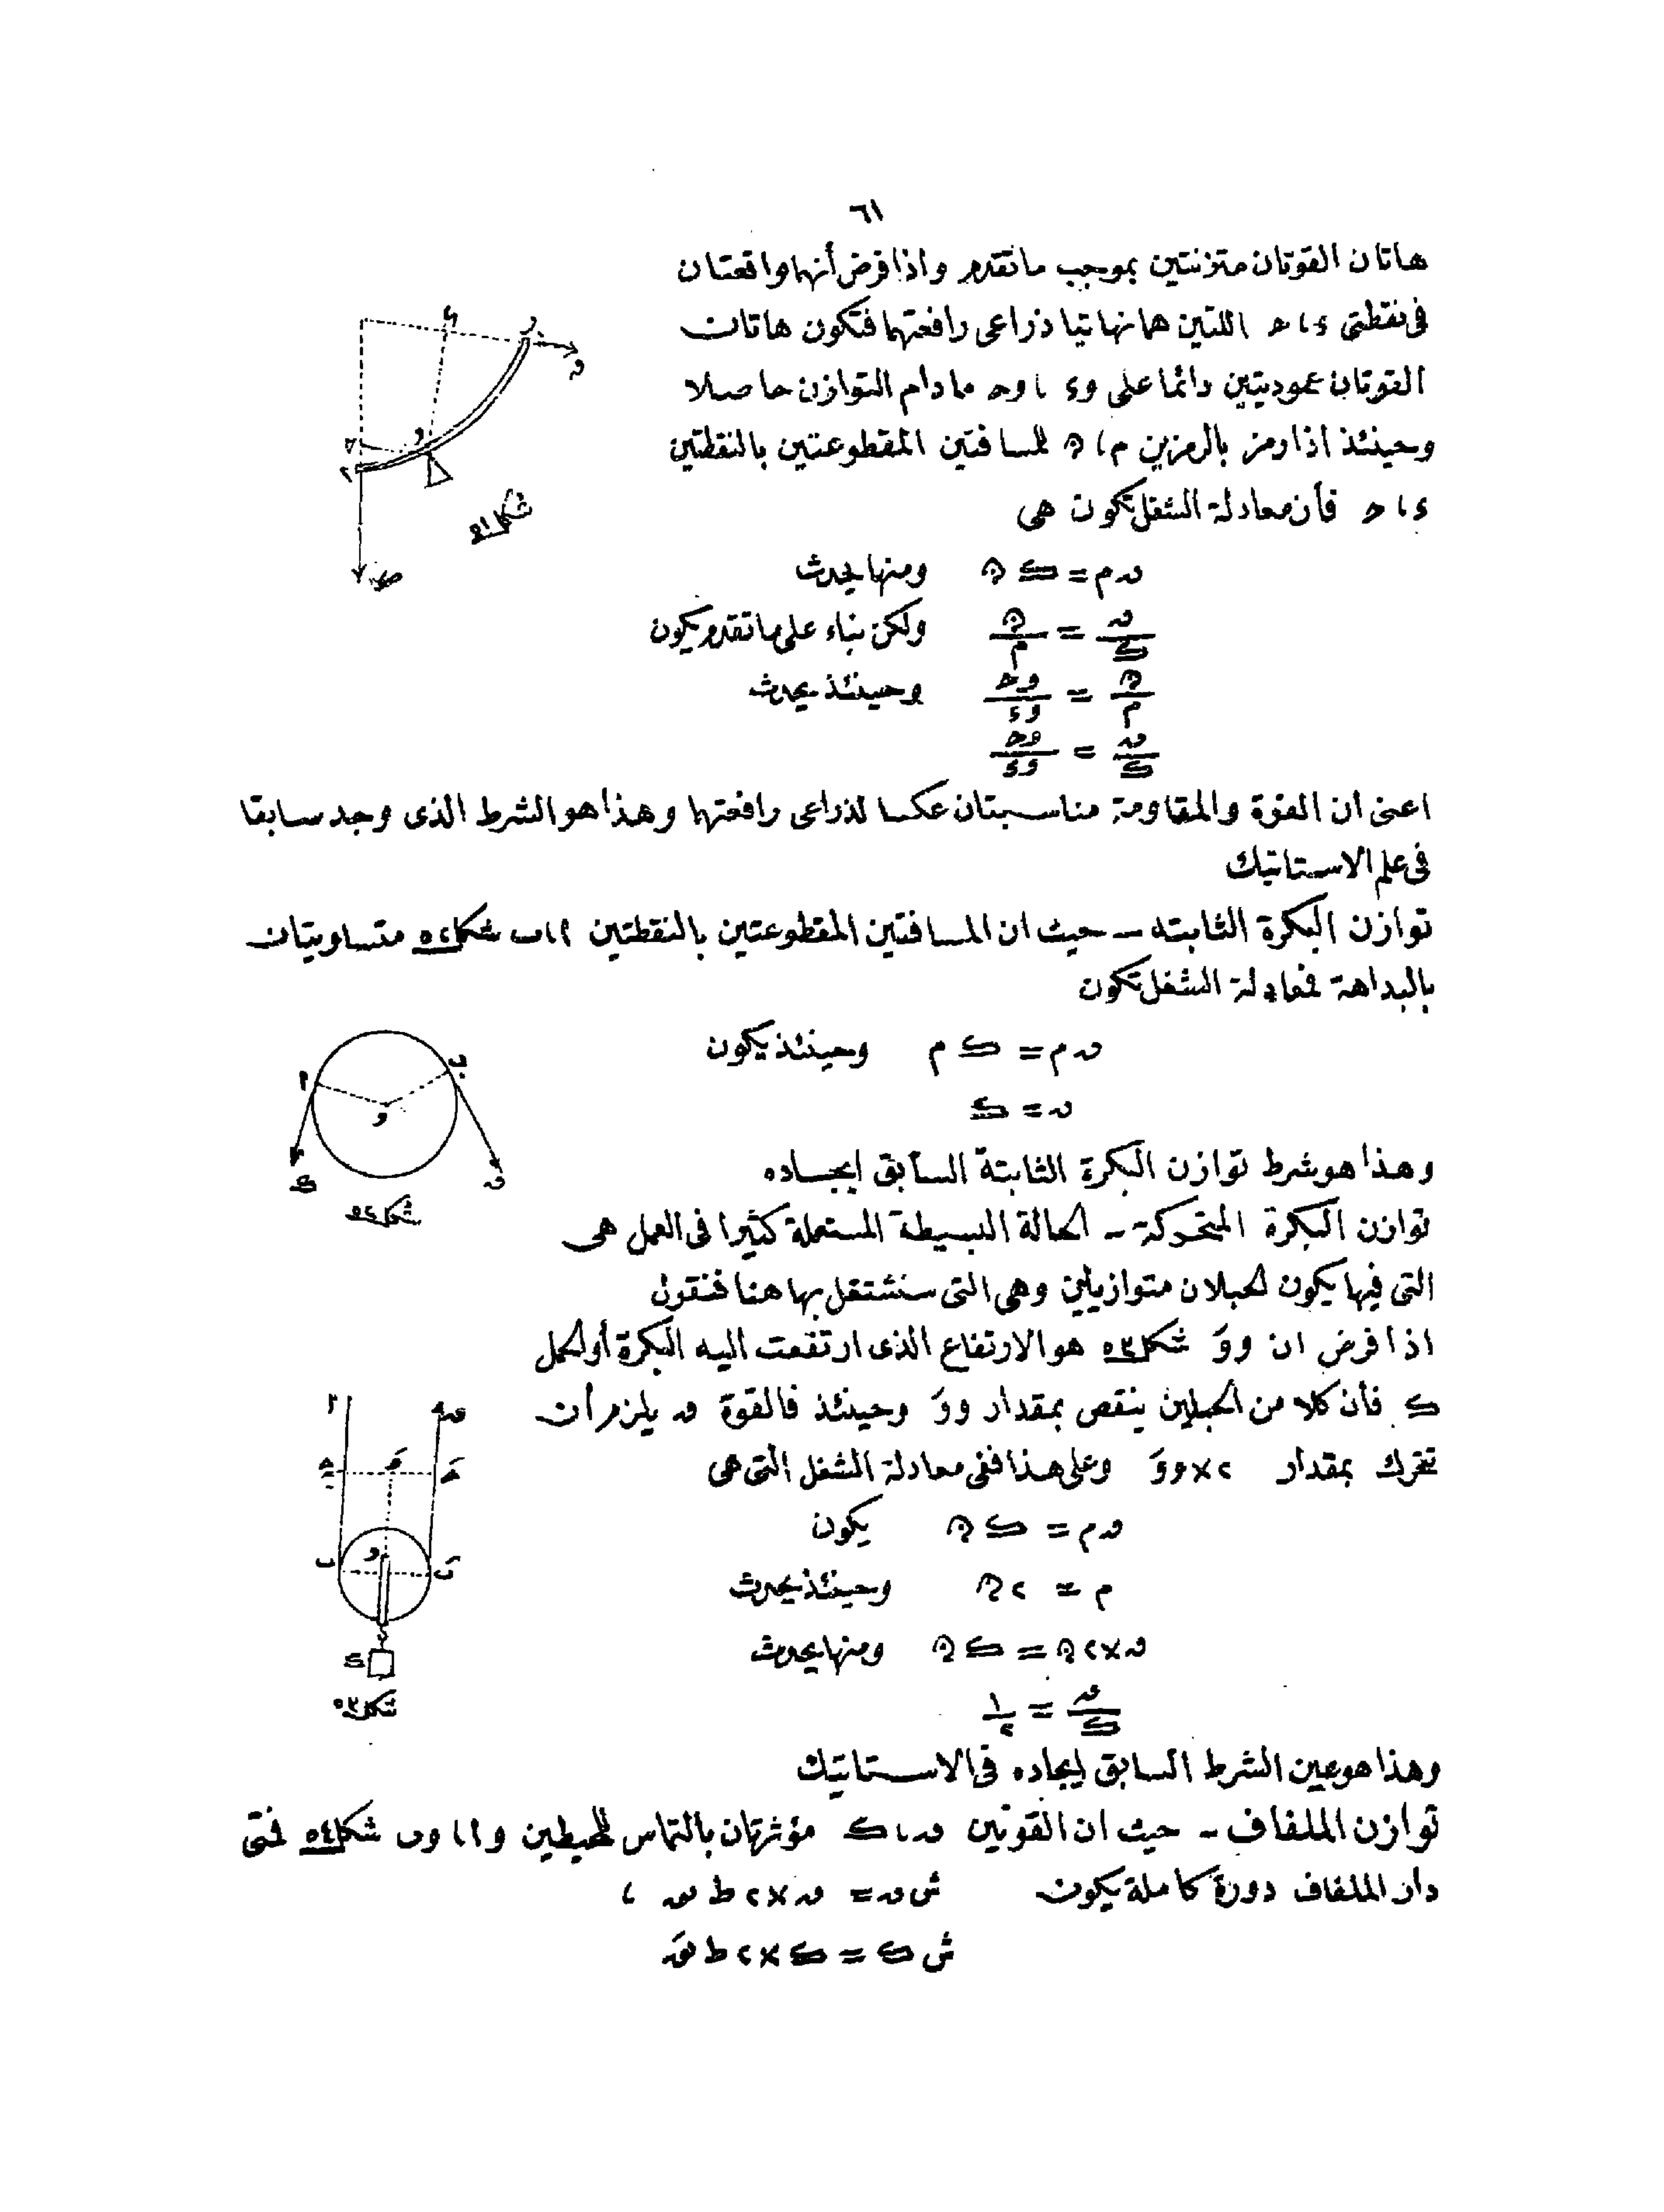 ٦١
هاتان القوتان متزنتين بموجب ماتقدم واذا فرض أنهما واقعتان
فى نقطتى ء ، ح اللتين هما نهايتيا ذراعى رافعتهما فتكون هاتان
القوتان عموديتين دائما على وء ، وح مادام التوازن حاصلا
وحينئذ اذا رمز بالرمزين م ، ﻫ للمسافتين المقطوعتين بالنقطتين
ء ، ح فأن معادلة الشغل تكون هى
ں م = ك ﻫ ومنها يحدث
ں/ك = ﻫ/م ولكن بناء على ماتقدم يكون
ﻫ/م = وح/وء وحينئذ يحدث
ں/ك = وح/وء
شكل ٥١
اعنى ان القوة والمقاومة مناسبتان عكسا لذراعى رافعتها وهذا هو الشرط الذى وجد سابقا
فى علم الاستاتيك
توازن البكرة الثابته – حيث ان المسافتين المقطوعتين بالنقطتين ا ، ب شكل ٥٢ متساويتان
بالبداهة فمعادلة الشغل تكون
ں م = ك م وحينئذ يكون
ں = ك
ا
ب
و
ك
ں
شكل ٥٢
وهذا هو شرط توازن البكرة الثابتة السابق ايجاده
توازن البكرة المتحركة – الحالة البسيطة المستعملة كثيرا فى العمل هى
التى فيها يكون الحبلان متوازيين وهى التى سنشتغل بها هنا فنقول
اذا فرض ان ووَ شكل ٥٣ هو الارتفاع الذى ارتفعت اليه البكرة أو الحمل
ك فأن كلا من الحبلين ينقص بمقدار ووَ وحينئذ فالقوة ں يلزم أن
تتحرك بمقدار ٢×ووَ وعلى هذا ففى معادلة الشغل التى هى
ں م = ك ﻫ يكون
م = ٢ ﻫ وحينئذ يحدث
ں×٢ ﻫ = ك ﻫ ومنها يحدث
ں/ك = ١/٢
ا
ں
و
ب
بَ
ك
شكل ٥٣
وهذا هو عين الشرط السابق ايجاده فى الاستاتيك
توازن الملفاف – حيث ان القوتين ں ، ك مؤثرتان بالتماس للمحيطين وا ، وب شكل ٥٤ فمتى
دار الملفاف دورة كاملة يكون ش ں = ں × ٢ ط نق ،
ش ك = ك × ٢ ط نقَ